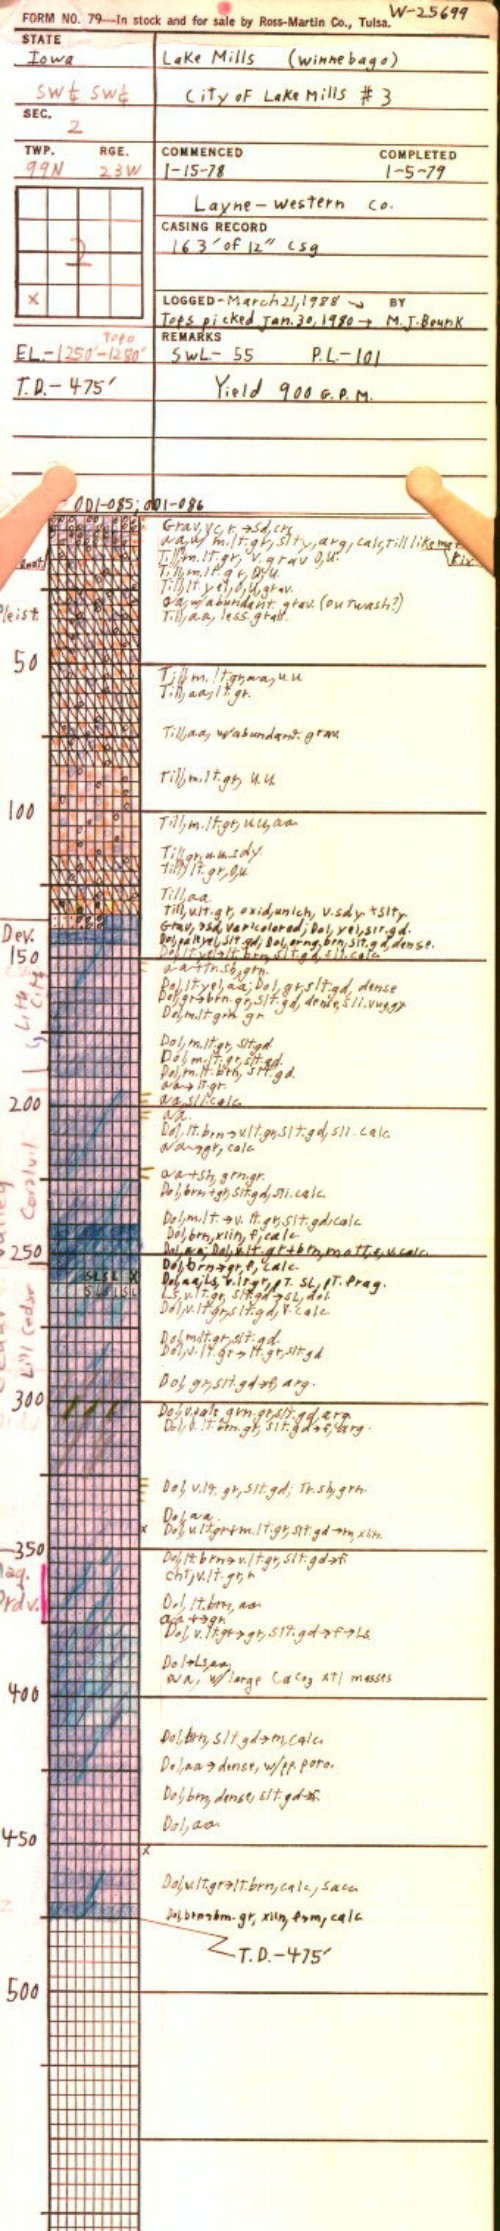 W-25699
FORM NO. 79—In stock and for sale by Ross-Martin Co., Tulsa.
STATE
Iowa
Lake Mills (Winnebago)
SW¼ SW¼
City of Lake Mills #3
SEC.
2
TWP. RGE.
99N 23W
COMMENCED COMPLETED
1-15-78 1-5-79
Layne-Western Co.
CASING RECORD
163' of 12" csg
2
X
LOGGED-March 21, 1988 BY
Tops picked Jan. 30, 1980 → M.J. Bounk
Topo
EL.-1250'-1280'
REMARKS
SWL- 55 P.L.-101
T.D.- 475'
Yield 900 G.P.M.
001-085; 001-086
Till, m.lt.gr, v. grav O,U.
Till, m.lt.gr, O,U.
Till, lt yel, O,U, grav.
aa, w/abundant. grav. (outwash?)
Till, aa, less grav.
Pleist.
50
Till, aa, lt.gr.
Till, aa, w/abundant. grav.
Till, m.lt.gr, U.U.
100
Till, m.lt.gr, U.U, aa.
Till, gr, U.U. sdy.
Till, lt.gr, O,U
Till, aa
Till, v.lt.gr, oxid, unlch, v.sdy + slty
Grav, → sd, varicolored; Dol, yel, slt.gd.
Dev.
Dol, pale yel, slt.gd; Dol, orng.brn, slt.gd, dense.
150
aa + tr. sh, grn.
Dol, lt yel, aa; Dol, gr, slt.gd, dense
Dol, gr → brn.gr, slt.gd, dense, sli. vuggy
Dol, m.lt grn gr
Lith City
Dol, m.lt.gr, slt.gd
Dol, m.lt.gr, slt.gd.
Dol, m.lt brn, slt.gd.
aa → lt.gr.
aa, sli calc
200
aa.
Dol, lt.brn → v.lt.gr, slt.gd, sli. calc
aa → gr, calc
Coralvil
aa + sh, grn.gr.
Dol, brn + gr, slt.gd, sli. calc.
Dol, m.lt → v. lt.gr, slt.gd, calc
Dol, brn, xlin, f, calc
250
Dol, aa; Dol, v.lt.gr + brn, mott, f, v.calc.
Dol, brn → gr, f, calc
Dol, aa; Ls, v.lt.gr, pt. SL, pt. frag.
LS, v.lt.gr, slt.gd → SL, dol.
Dol, v.lt.gr, slt.gd, v. calc
Lil Cedar
Valley
Dol, m.lt.gr, slt.gd.
Dol, v.lt.gr → lt.gr, slt.gd
Dol, gr, slt.gd → f, arg.
300
Dol, v.pale grn.gr, slt.gd, arg
Dol, v.lt brn.gr, slt.gd → f, arg.
Dol, v.lt. gr, slt.gd; Tr. sh, grn.
Dol, aa.
x Dol, v.lt gr + m.lt.gr, slt.gd → m, xlin
350
Dol, lt brn → v.lt gr, slt.gd → f.
cht, v.lt.gr, n
Maq.
Ordv.
Dol, lt. brn, aa
aa + → gr.
Dol, v.lt.gr → gr, slt.gd → f → Ls
Dol → Ls, aa
aa, w/large CaCO3 xtl masses
400
Dol, brn, slt.gd → m, calc.
Dol, aa → dense, w/pp. poro.
Dol, brn, dense, slt.gd → f.
Dol, aa.
450
x
Dol, v.lt gr → lt.brn, calc, sacc
Dol, brn → brn.gr, xlin, f → m, calc
T.D.-475'
500